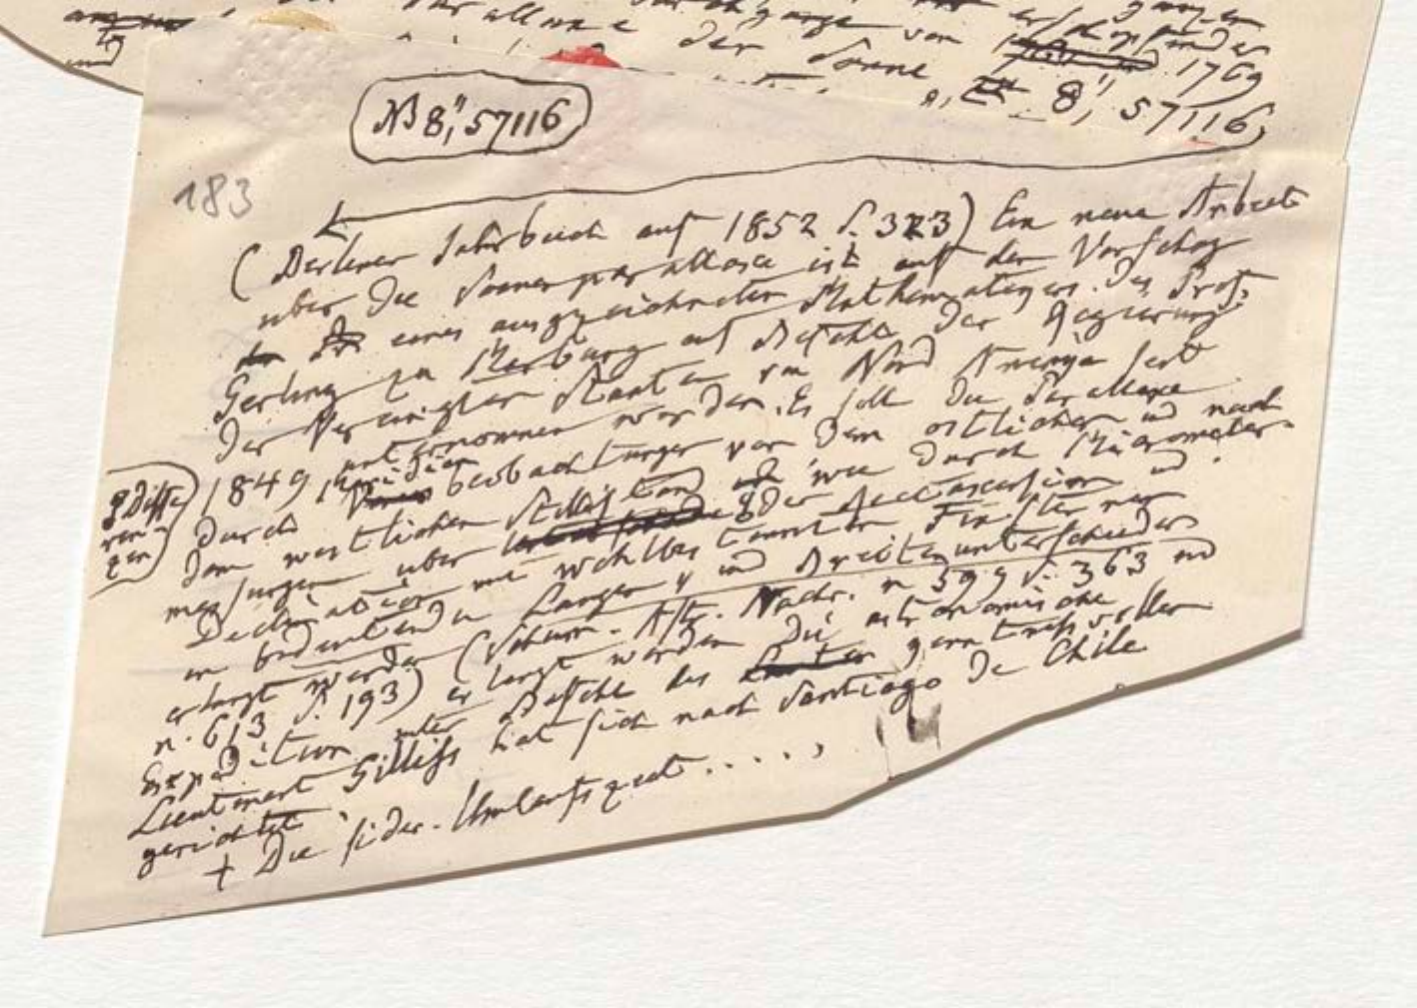 der Sonne
1769
8", 57116,
NB 8", 57116
183
(Berliner Jahrbuch auf 1852 S. 323) Ein neue Arbeit
über die Sonnenparallaxe ist auf den Vorschlag
eines ausgezeichneten Mathematigers, des Prof.
Gerling zu Marburg auf Befehl der Regierung
der Vereinigten Staaten von Nord Amerika seit
1849 unternommen worden. Es soll die Parallaxe
durch Meridian beobachtungen vor dem östlichen und nach
dem westlichen Stillstand wie durch Micrometer-
messungen über der Rectascension und
Differenzen
Declination mit wohlbestimmten Fixsternen
in bedeutenden Längen und Breitenunterschieden
erlangt werden (Schum. Astr. Nachr. n 599 S. 363 und
n. 613 S. 193) erlangt werden. Die astronomische
Expedition unter Befehl des kenntnissvollen
Lieutenant Gilliss hat sich nach Santiago de Chile
gerichtet.
+ Die sider. Umlaufszeit . . . . ,